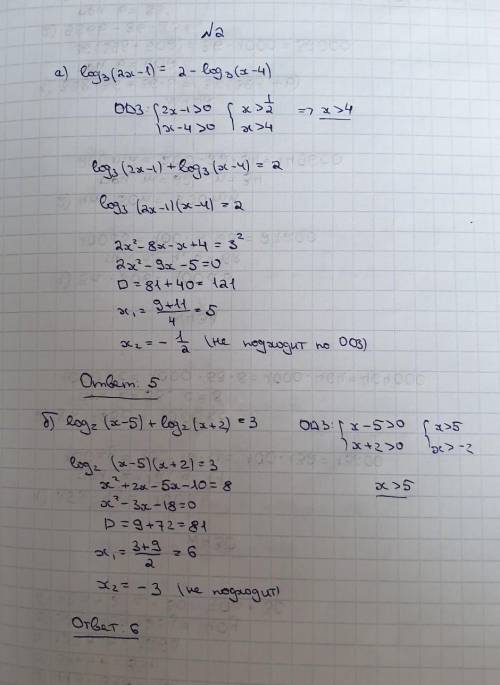 №2
а) log₃(2x-1) = 2 - log₃(x-4)
ОДЗ: {2x-1>0 {x>1/2 => x>4
x-4>0 x>4
log₃(2x-1)+log₃(x-4) = 2
log₃(2x-1)(x-4) = 2
2x²-8x-x+4 = 3²
2x²-9x-5=0
D = 81+40= 121
x₁ = (9+11)/4 = 5
x₂ = - 1/2 (не подходит по ОДЗ)
Ответ: 5
б) log₂(x-5)+log₂(x+2) = 3 ОДЗ: {x-5>0 {x>5
x+2>0 x>-2
log₂(x-5)(x+2)=3
x²+2x-5x-10=8 x>5
x²-3x-18=0
D = 9+72=81
x₁ = (3+9)/2 = 6
x₂ = -3 (не подходит)
Ответ: 6